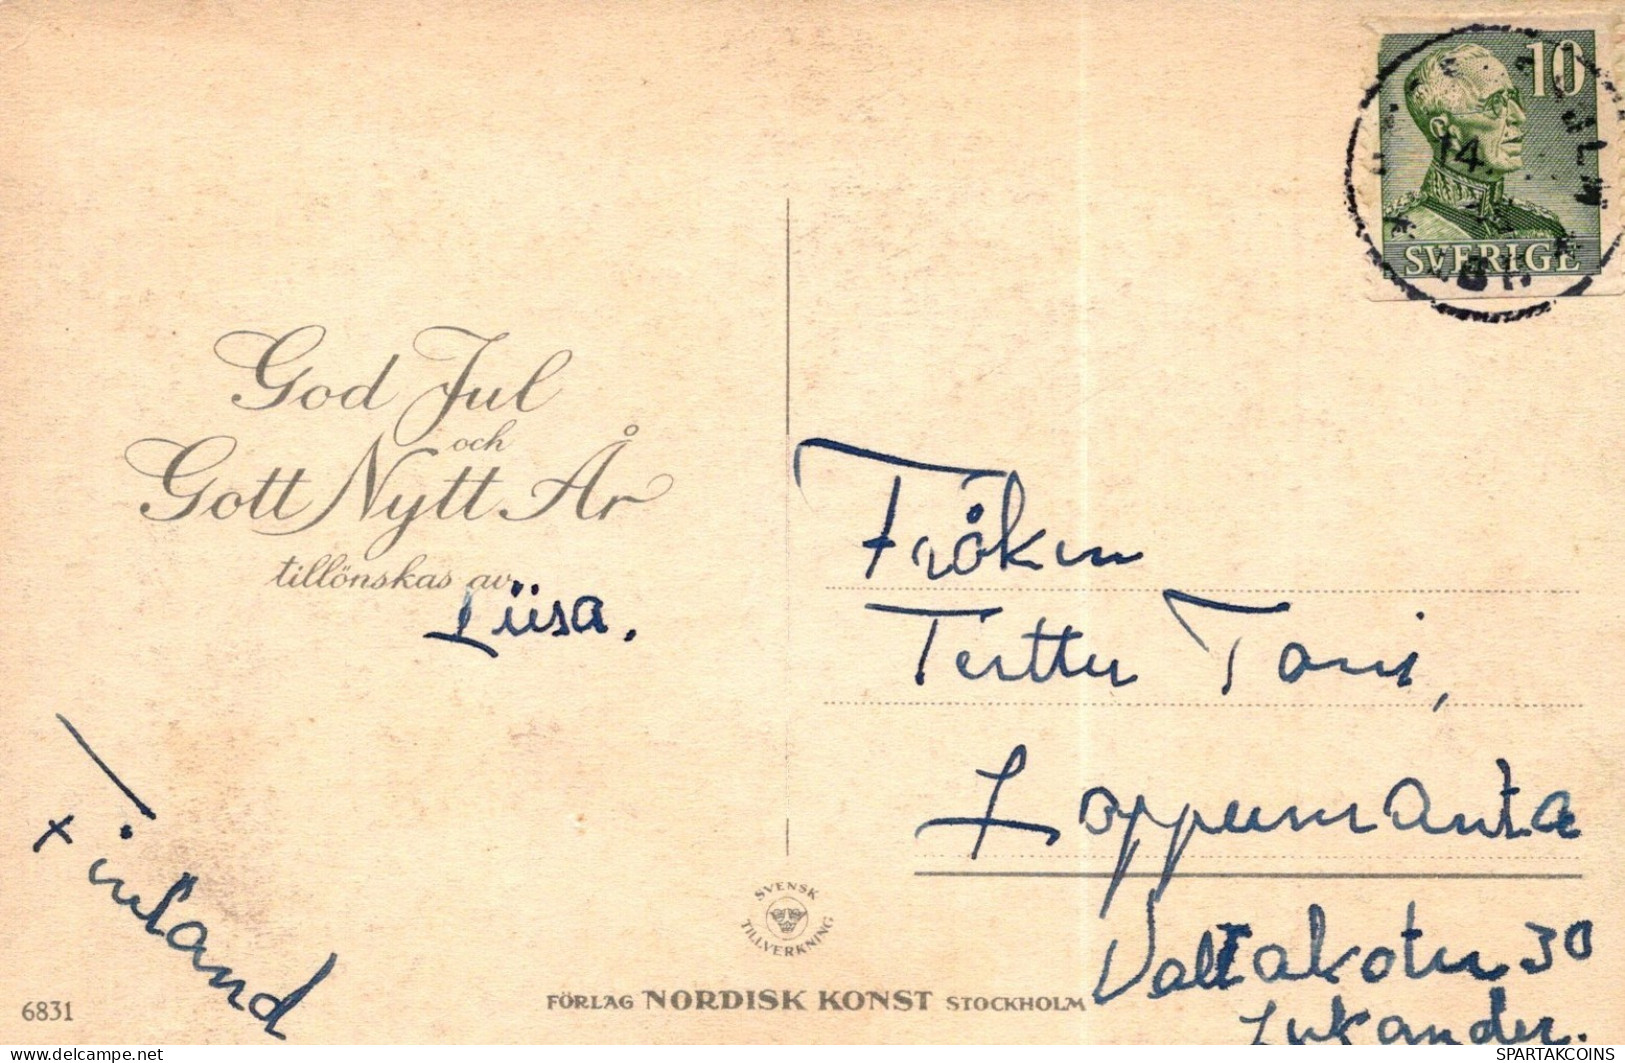 10
14.
SVERIGE
God Jul
och
Gott Nytt År
tillönskas av
Liisa.
Fröken
Terttu Toni,
Lappeenranta
Valtakatu 30
Lukander.
Finland
SVENSK
TILLVERKNING
6831
FÖRLAG NORDISK KONST STOCKHOLM
delcampe.net
SPARTAKCOINS
WWW.SPARTAKCOINS.COM